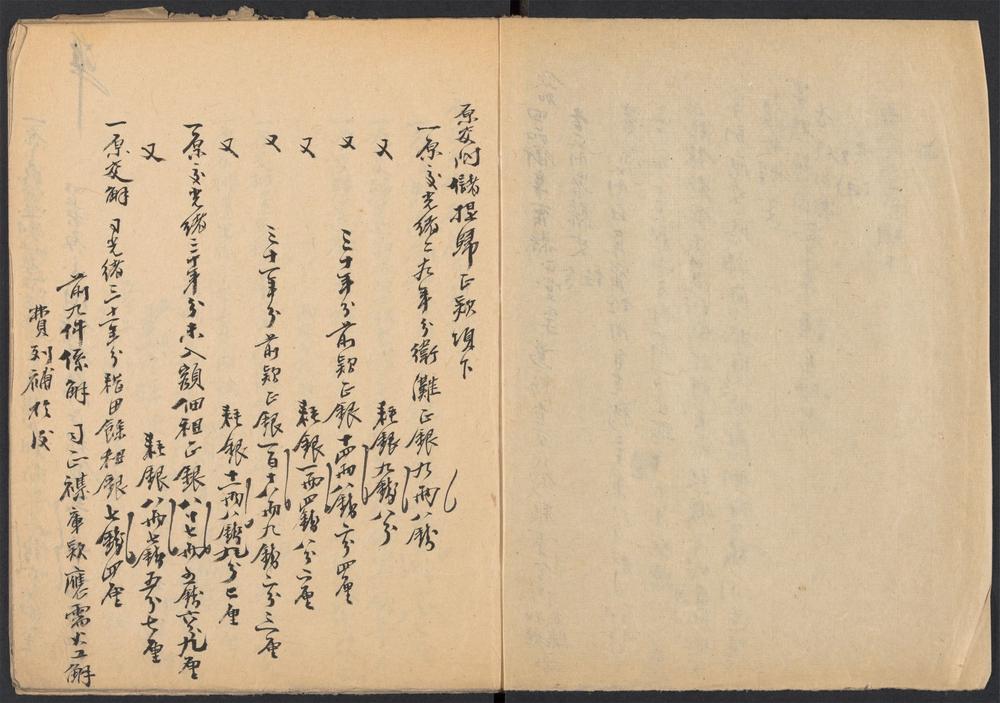 原交附儲提歸正款項下
一原交光緒二十九年分衛灘正銀九兩八錢
又 耗銀九錢八分
又 三十年分前款正銀十四兩八錢六分四厘
又 耗銀一兩四錢八分六厘
又 三十一年分前款正銀一百十八兩九錢六分三厘
又 耗銀十一兩八錢九分七厘
一原交光緒三十年分未入額佃租正銀八十七兩五錢六分九厘
又 耗銀八兩七錢五分七厘
一原交解 司光緒三十一年分耤田餘租銀七錢四厘
前九件係解 司正襍庫款應需大工解
費列補於後